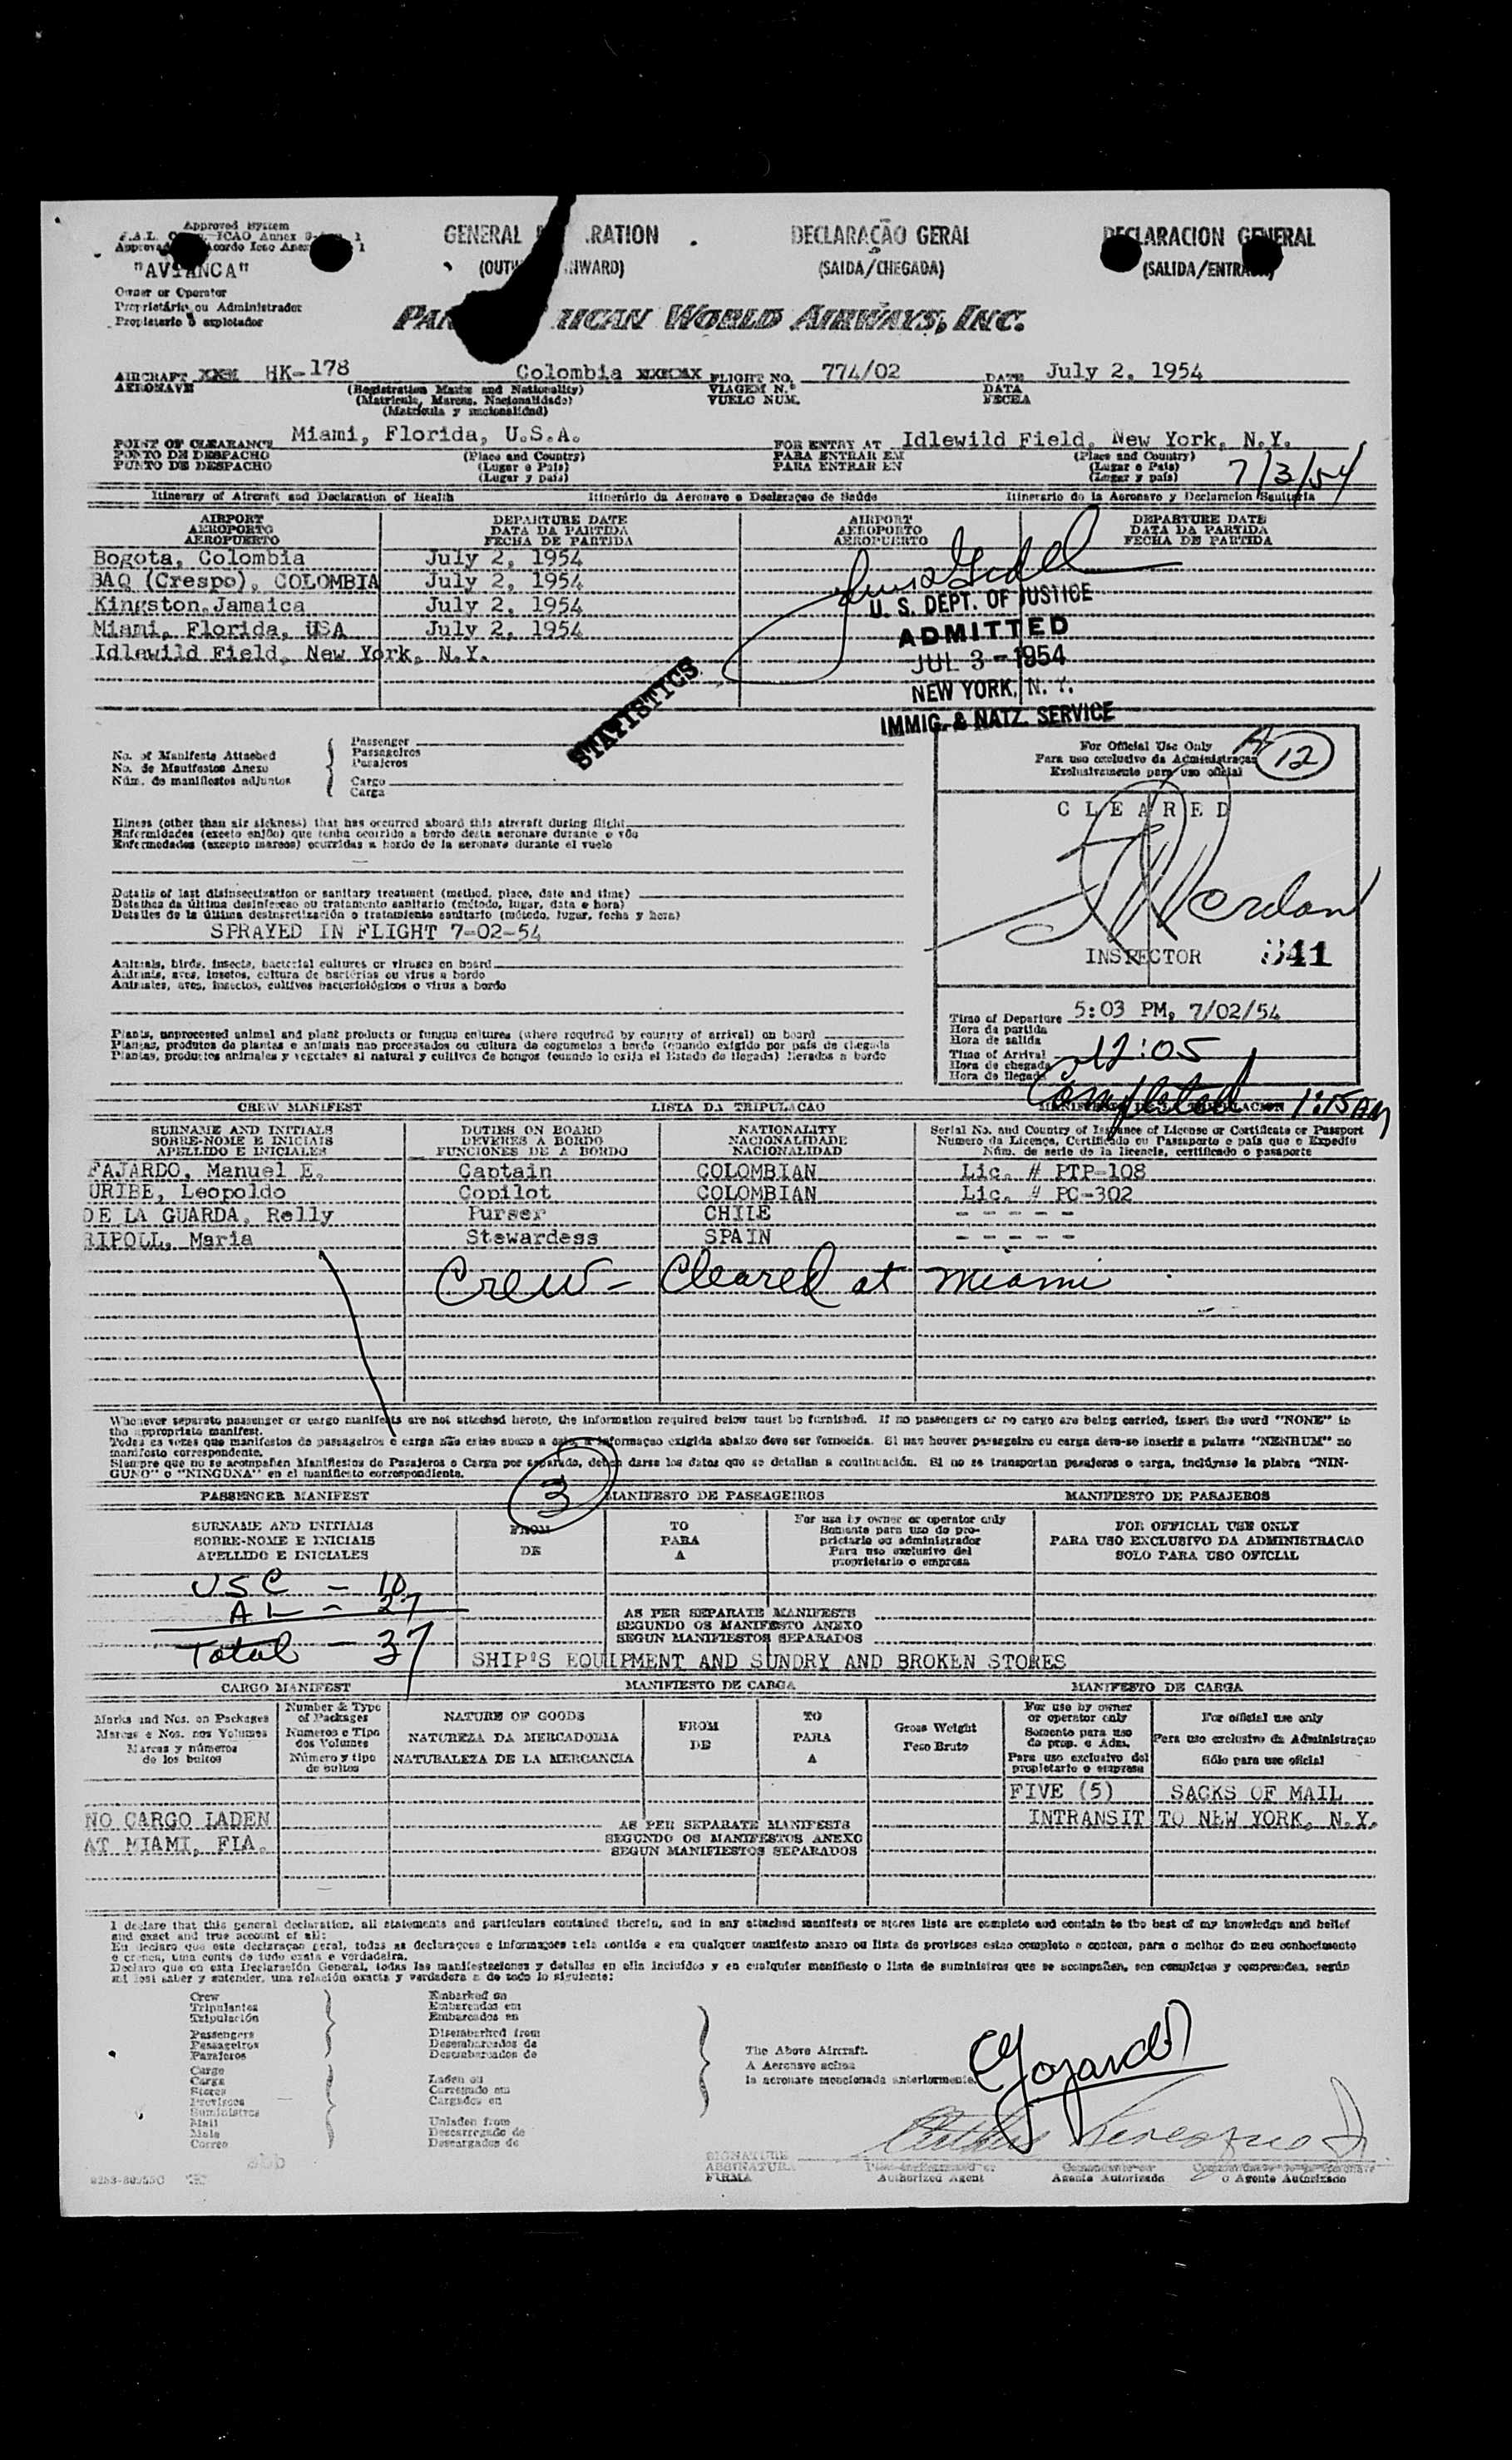 Approved System
"AVIANCA"
Owner or Operator
Proprietário ou Administrador
Propietario o explotador
GENERAL RATION
DECLARAÇÃO GERAL
DECLARACION GENERAL
(SAIDA/CHEGADA)
(SALIDA/ENTRADA)
WORLD AIRWAYS, INC.
AIRCRAFT HK-178 Colombia FLIGHT NO. 774/02 DATE July 2, 1954
AERONAVE VIAGEM N.º DATA
(Registration Marks and Nationality) VUELO NUM. FECHA
(Matricula, Marcas, Nacionalidade)
(Matricula y nacionalidad)
POINT OF CLEARANCE Miami, Florida, U.S.A. FOR ENTRY AT Idlewild Field, New York, N.Y.
PONTO DE DESPACHO (Place and Country) PARA ENTRAR EM (Place and Country)
PUNTO DE DESPACHO (Lugar e Pais) PARA ENTRAR EN (Lugar e Pais)
(Lugar y pais) (Lugar y pais) 7/3/54
Itinerary of Aircraft and Declaration of Health Itinerário da Aeronave e Declaraçao de Saúde Itinerario de la Aeronave y Declaracion Sanitaria
AIRPORT DEPARTURE DATE AIRPORT DEPARTURE DATE
AEROPORTO DATA DA PARTIDA AEROPORTO DATA DA PARTIDA
AEROPUERTO FECHA DE PARTIDA AEROPUERTO FECHA DE PARTIDA
Bogota, Colombia July 2, 1954
BAQ (Crespo), COLOMBIA July 2, 1954
Kingston, Jamaica July 2, 1954
Miami, Florida, USA July 2, 1954
Idlewild Field, New York, N.Y.
U. S. DEPT. OF JUSTICE
ADMITTED
JUL 3 - 1954
NEW YORK, N. Y.
IMMIG. & NATZ. SERVICE
STATISTICS
No. of Manifests Attached
No. de Manifestos Anexo
Núm. de manifiestos adjuntos
Passenger
Passageiros
Pasajeros
Cargo
Carga
For Official Use Only
Para uso exclusivo da Administraçao
Exclusivamente para uso oficial
12
CLEARED
INSPECTOR 841
Illness (other than air sickness) that has occurred aboard this aircraft during flight
Enfermidades (exceto enjôo) que tenha ocorrido a bordo desta aeronave durante o vôo
Enfermedades (excepto mareos) ocurridas a bordo de la aeronave durante el vuelo
Details of last disinsectization or sanitary treatment (method, place, date and time)
Detalhes da última desinfeccao ou tratamento sanitario (método, lugar, data e hora)
Detalles de la última desinsectización o tratamiento sanitario (método, lugar, fecha y hora)
SPRAYED IN FLIGHT 7-02-54
Animals, birds, insects, bacterial cultures or viruses on board
Animais, aves, insetos, cultura de bactérias ou virus a bordo
Animales, aves, insectos, cultivos bacteriológicos o virus a bordo
Plants, unprocessed animal and plant products or fungus cultures (where required by country of arrival) on board
Plantas, produtos de plantas e animais nao processados ou cultura de cogumelos a bordo (quando exigido por país de chegada
Plantas, productos animales y vegetales al natural y cultivos de hongos (cuando lo exija el Estado de llegada) llevados a bordo
Time of Departure 5:03 PM, 7/02/54
Hora da partida
Hora de salida
Time of Arrival 12:05
Hora de chegada
Hora de llegada
Completed 1:15 AM
CREW MANIFEST LISTA DA TRIPULACAO
SURNAME AND INITIALS DUTIES ON BOARD NATIONALITY Serial No. and Country of Issuance of License or Certificate or Passport
SOBRE-NOME E INICIAIS DEVERES A BORDO NACIONALIDADE Numero da Licença, Certificado ou Passaporte e pais que o Expediu
APELLIDO E INICIALES FUNCIONES DE A BORDO NACIONALIDAD Núm. de serie de la licencia, certificado o pasaporte
FAJARDO, Manuel E. Captain COLOMBIAN Lic. # PTP-108
URIBE, Leopoldo Copilot COLOMBIAN Lic. # PC-302
DE LA GUARDA, Relly Purser CHILE - - - - -
RIPOLL, Maria Stewardess SPAIN - - - - -
Crew - Cleared at Miami
Whenever separate passenger or cargo manifests are not attached hereto, the information required below must be furnished. If no passengers or no cargo are being carried, insert the word "NONE" in
the appropriate manifest.
Todas as vezes que manifestos de passageiros e carga não estao anexo a este, a informaçao exigida abaixo deve ser fornecida. Si nao houver passageiro ou carga deve-se inserir a palavra "NENHUM" no
manifesto correspondente.
Siempre que no se acompañen Manifiestos de Pasajeros o Carga por separado, deben darse los datos que se detallan a continuación. Si no se transportan pasajeros o carga, inclúyase la plabra "NIN-
GUNO" o "NINGUNA" en el manifiesto correspondiente.
3
PASSENGER MANIFEST MANIFESTO DE PASSAGEIROS MANIFIESTO DE PASAJEROS
SURNAME AND INITIALS FROM TO For use by owner or operator only FOR OFFICIAL USE ONLY
SOBRE-NOME E INICIAIS DE PARA Somente para uso do pro- PARA USO EXCLUSIVO DA ADMINISTRACAO
APELLIDO E INICIALES A prietario ou administrador SOLO PARA USO OFICIAL
Para uso exclusivo del
propietario o empresa
USC - 10
AL - 27
Total - 37
AS PER SEPARATE MANIFESTS
SEGUNDO OS MANIFESTO ANEXO
SEGUN MANIFIESTOS SEPARADOS
SHIP'S EQUIPMENT AND SUNDRY AND BROKEN STORES
CARGO MANIFEST MANIFIESTO DE CARGA MANIFESTO DE CARGA
Marks and Nos. on Packages Number & Type of Packages NATURE OF GOODS FROM TO Gross Weight For use by owner or operator only For official use only
Marcas e Nos. nos Volumes Numeros e Tipo dos Volumes NATUREZA DA MERCADORIA DE PARA Peso Bruto Somente para uso do prop. e Adm. Para uso exclusivo da Administraçao
Marcas y números de los bultos Número y tipo de bultos NATURALEZA DE LA MERCANCIA A Para uso exclusivo del propietario o empresa Sólo para uso oficial
FIVE (5) SACKS OF MAIL
NO CARGO LADEN INTRANSIT TO NEW YORK, N.Y.
AT MIAMI, FLA.
AS PER SEPARATE MANIFESTS
SEGUNDO OS MANIFESTOS ANEXO
SEGUN MANIFIESTOS SEPARADOS
I declare that this general declaration, all statements and particulars contained therein, and in any attached manifests or stores lists are complete and contain to the best of my knowledge and belief
and exact and true account of all:
Eu declaro que este declaraçao geral, todas as declaraçoes e informaçoes nela contida e em qualquer manifesto anexo ou lista de provisoes estao completo e contem, para o melhor do meu conhecimento
e crença, uma conta de tudo exata e verdadeira.
Declaro que en esta Declaración General, todas las manifestaciones y detalles en ella incluídos y en cualquier manifiesto o lista de suministros que se acompañen, son completos y comprenden, según
mi leal saber y entender, una relación exacta y verdadera de todo lo siguiente:
Crew
Tripulantes
Tripulación
Passengers
Passageiros
Pasajeros
Cargo
Carga
Stores
Suministros
Mail
Mala
Correo
Embarked on
Embarcados em
Embarcados en
Disembarked from
Desembarcados de
Desembarcados de
Laden on
Carregado em
Cargados en
Unladen from
Descarregado de
Descargados de
The Above Aircraft.
A Aeronave acima
la aeronave mencionada anteriormente.
SIGNATURE
ASSINATURA
FIRMA
Authorized Agent Agente Autorizado o Agente Autorizado